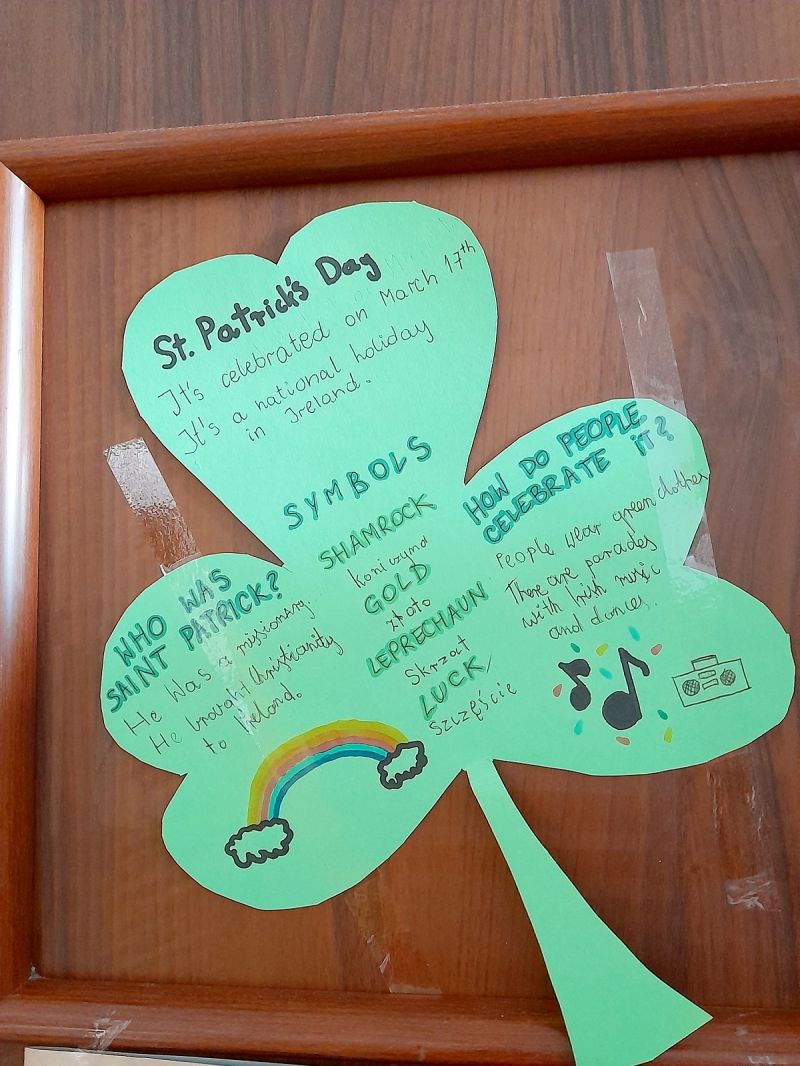 St. Patrick's Day
It's celebrated on March 17th
It's a national holiday
in Ireland.
SYMBOLS
SHAMROCK
koniczyna
GOLD
złoto
LEPRECHAUN
Skrzat
LUCK
Szczęście
WHO WAS
SAINT PATRICK?
He was a missionary.
He brought Christianity
to Ireland.
HOW DO PEOPLE
CELEBRATE IT?
People wear green clothes
There are parades
with Irish music
and dances.